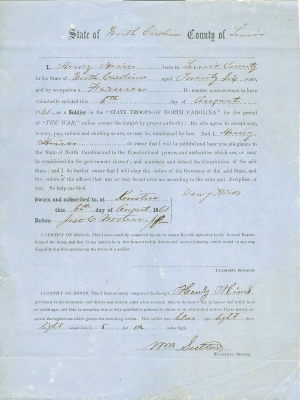 State of North Carolina County of Lenoir
I, Henry Hines born in Lenoir County
in the State of North Carolina aged Twenty Six years,
and by occupation a Farmer Do hereby acknowledge to have
voluntarily enlisted this 6th day of August
1861 as a Soldier in the "STATE TROOPS OF NORTH CAROLINA" for the period
of "THE WAR," unless sooner discharged by proper authority; Do also agree to accept such
bounty, pay, rations and clothing as are, or may be established by law. And I, Henry
Hines do swear that I will be faithful and bear true allegiance to the
State of North Carolina and to the Constitutional powers and authorities which are, or may
be established for the government thereof; and maintain and defend the Constitution of the said
State; and I do further swear that I will obey the orders of the Governor of the said State, and
the orders of officers that are or may be set over me according to the rules and discipline of
war. So help me God.
Henry Hines
Sworn and subscribed to, at Kinston
this 6th day of August 1861
Before
I CERTIFY ON HONOR, That I have carefully examined the above named Recruit, agreeably to the General Regulations
of the Army, and that in my opinion he is free from all bodily defects and mental infirmity, which would in any way
disqualify him from performing the duties of a soldier.
EXAMINING SURGEON.
I CERTIFY ON HONOR, That I have minutely inspected the Recruit, Henry Hines
previously to his enlistment, and that he was entirely sober when enlisted; that, to the best of my judgment and belief, he is
of lawful age; and that, in accepting him as duly qualified to perform the duties of an able-bodied soldier, I have strictly observed
the regulations which govern the recruiting service. This soldier has blue eyes, light hair,
light complexion, is 5 feet inches high.
RECRUITING OFFICER.